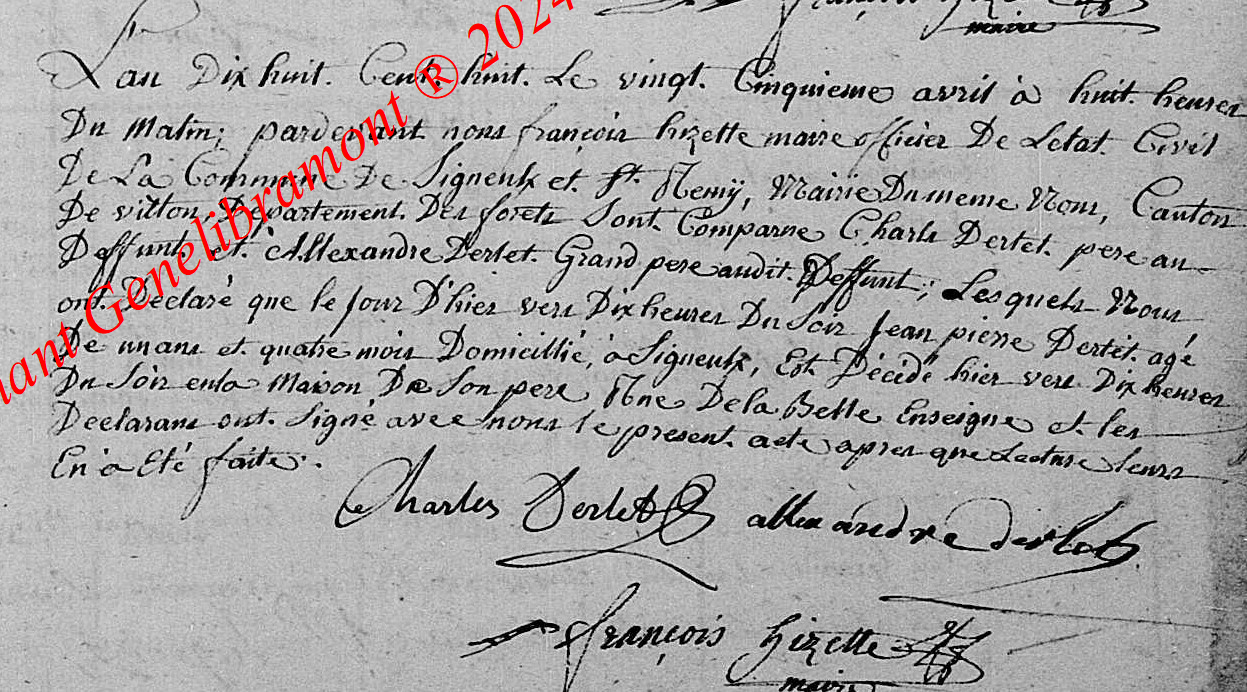 françois hizette
maire
Lan Dix huit. Cent. huit. Le vingt. Cinquieme avril à huit. heures
Du Matin; pardevant nous françois hizette maire officier De Letat. Civil
De La Commune De Signeulx et. St. Remÿ, Mairie Du meme Nom, Canton
De virton, Departement. Des forets Sont. Comparue Charles Derlet. pere au
Deffunt. et. Allexandre Derlet. Grand pere audit. Deffunt; Lesquels Nous
ont. Déclaré que le Jour D'hier vers Dix heures Du Soir Jean pierre Derlet. agé
De un ans et. quatre mois Domicillié, à Signeulx, Est. Décédé hier vers Dix heures
Du Soir en la Maison De Son pere Rue De la Belle Enseigne et. les
Declarans ont. Signé avec nous le present. acte apres que Lecture leurs
En a Eté faite.
Charles Derlet allexandre derlet
françois hizette
maire
nant Genelibramont ® 2024